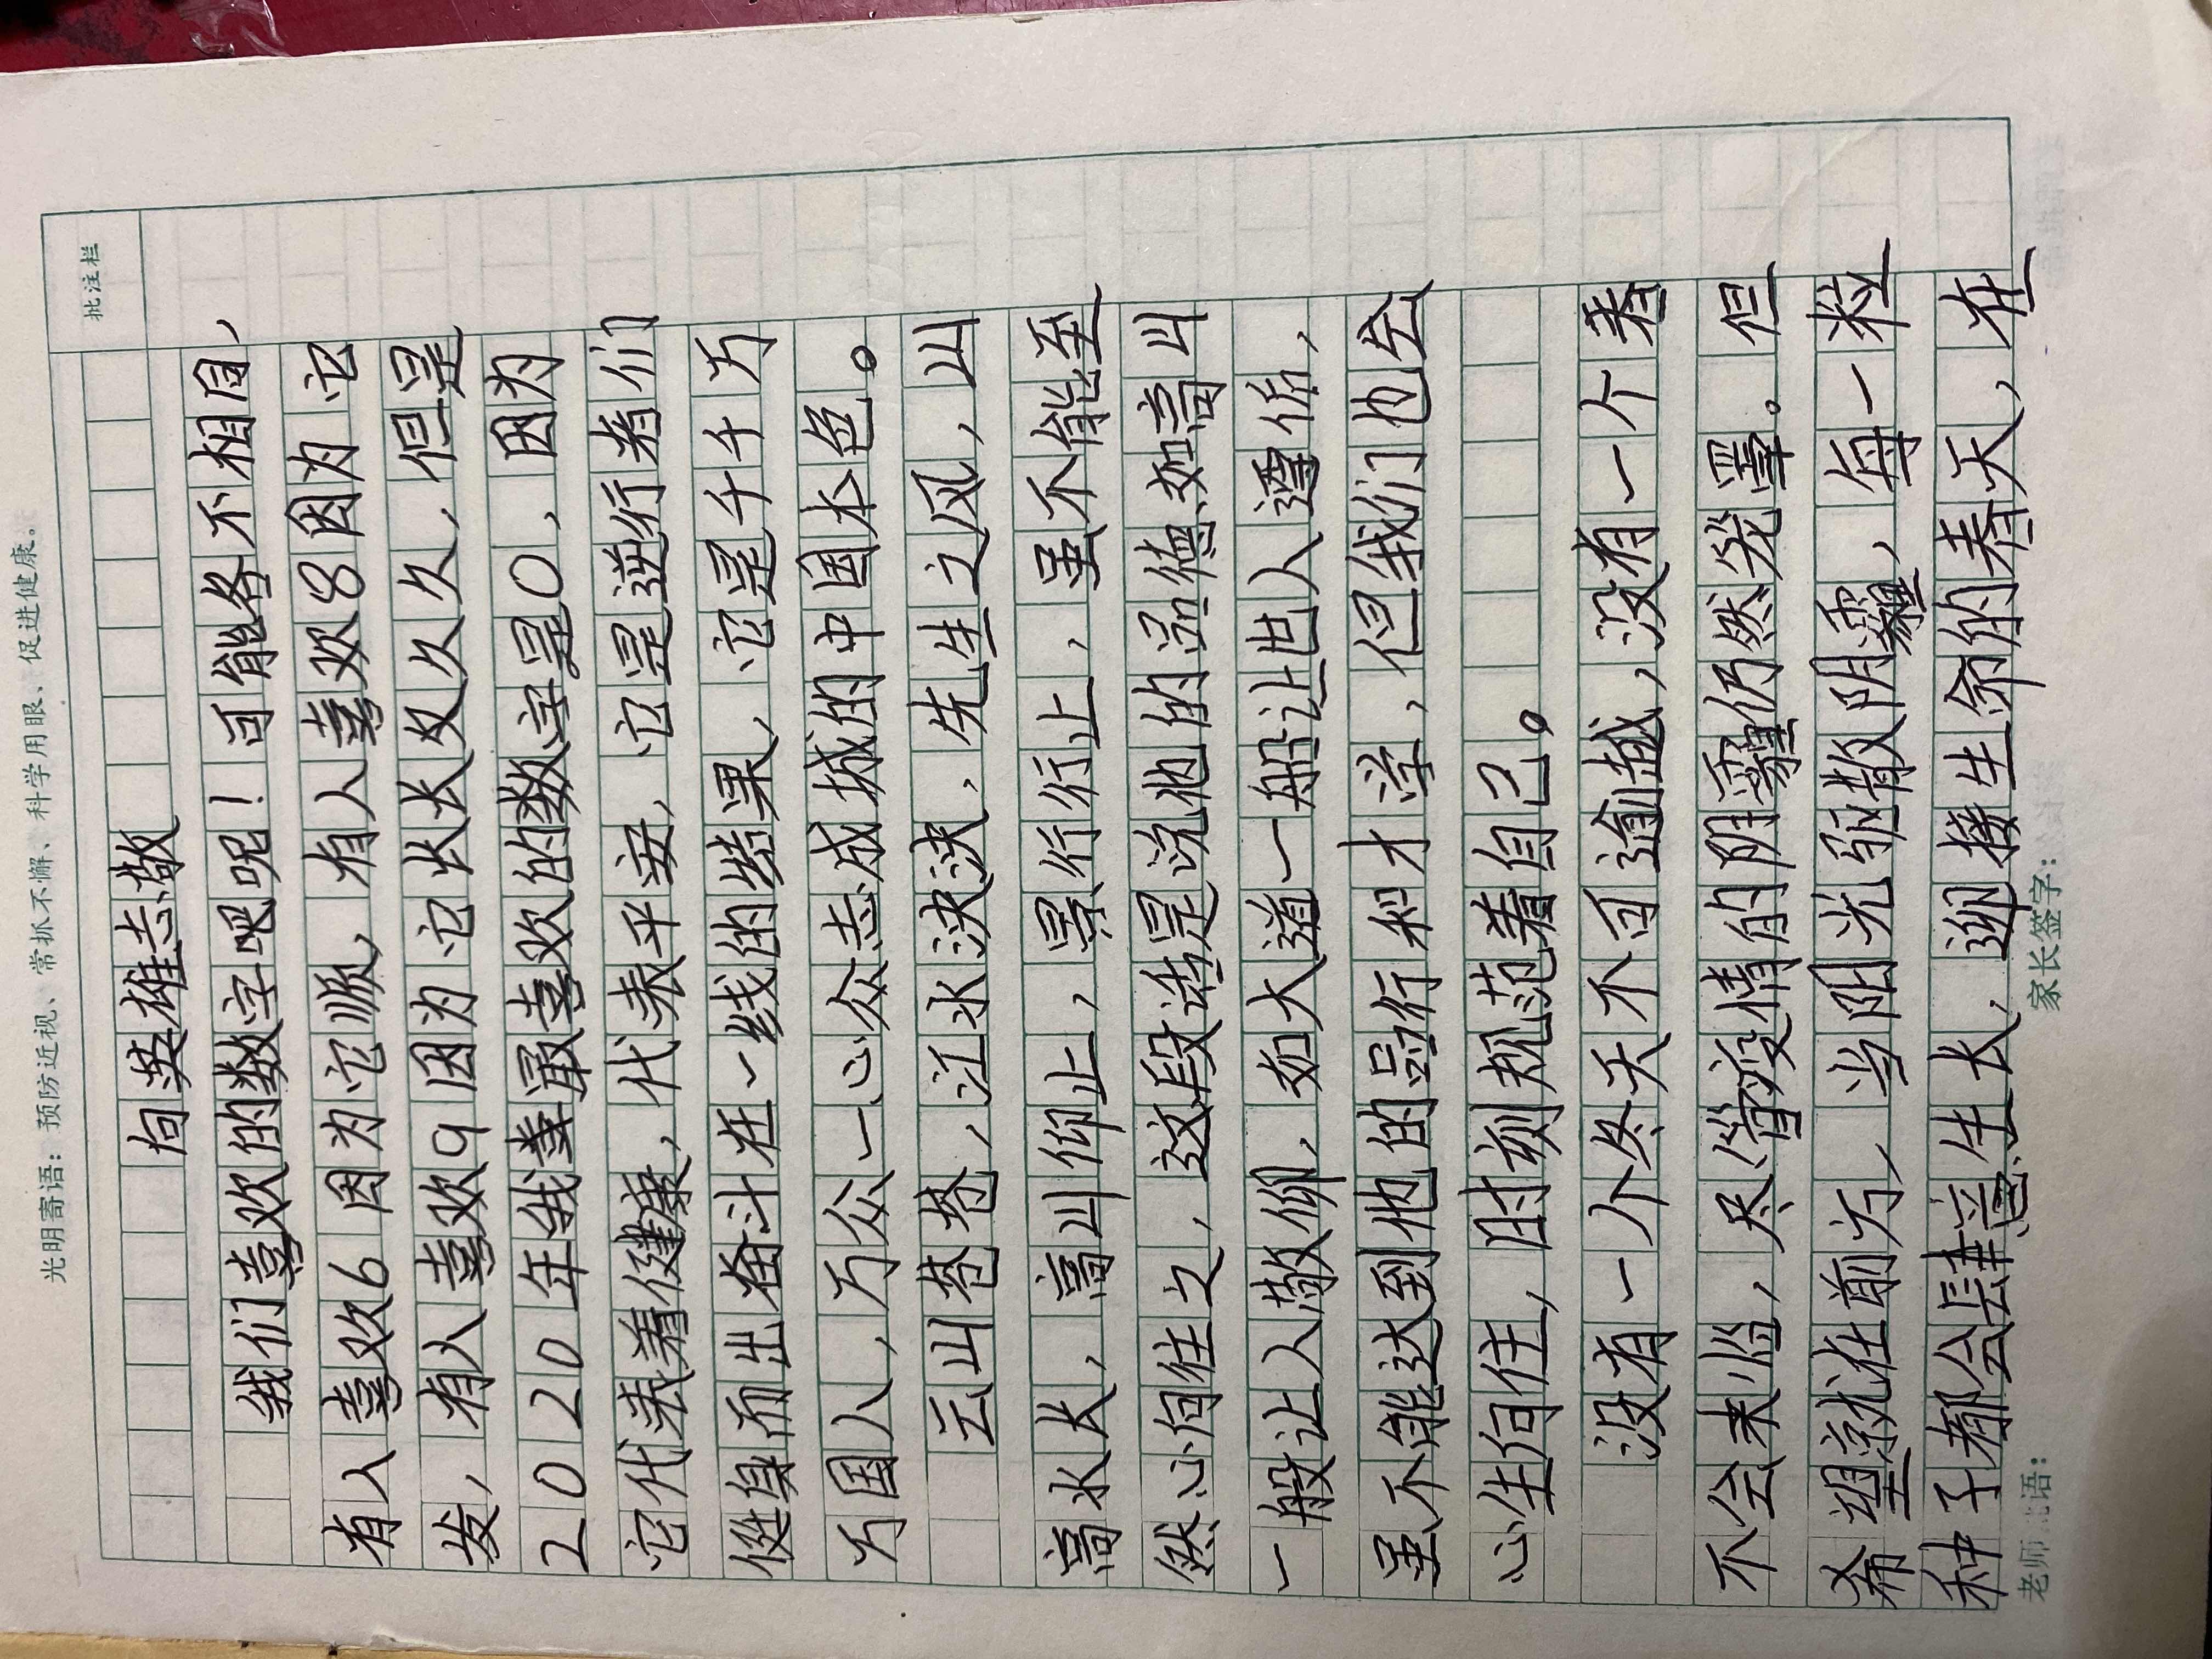 光明寄语：预防近视、常抓不懈、科学用眼、促进健康。
批注栏
向英雄志敬
我们喜欢的数字吧呢！可能各不相同，
有人喜欢6因为它顺，有人喜欢8因为它
发，有人喜欢9因为它长长久久久，但是
2020年我最喜欢的数字是0，因为
它代表着健康，代表平安，它是逆行者们
挺身而出奋斗在一线的结果，它是千千万
万国人，万众一心众志成城的中国本色。
云山苍苍，江水泱泱，先生之风，山
高水长，高山仰止，景行行止，虽不能至
然心向往之，这段话是说他的品德如高山
一般让人敬仰，如大道一般让世人遵循，
虽不能达到他的品行和才学，但我们也会
心生向往，时刻规范着自己。
没有一个冬天不可逾越，没有一个春
不会来临，尽管疫情的阴霾仍然笼罩。但
希望就在前方，当阳光驱散阴霾，每一粒
种子都会肆意生长，迎接生命的春天，在
老师 语：
家长签字：